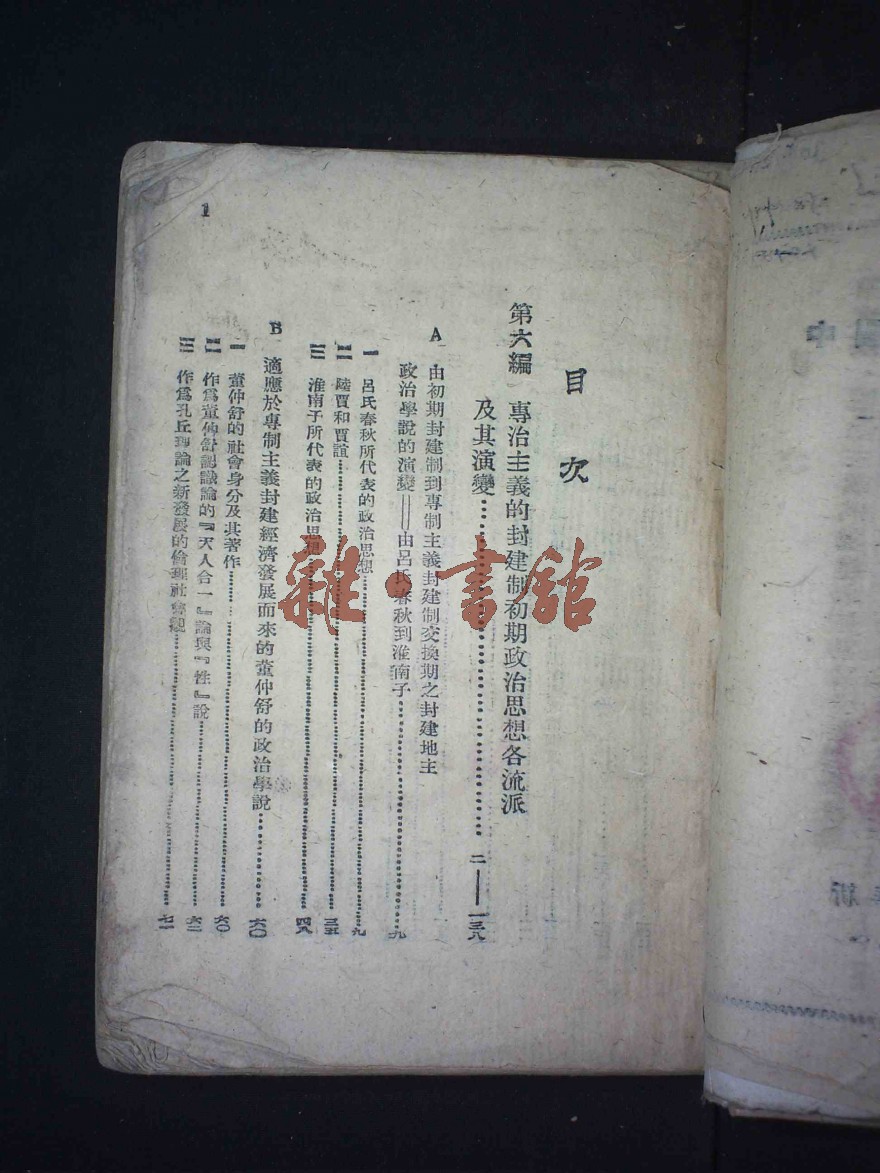 目次
第六編　專治主義的封建制初期政治思想各流派
及其演變……………………二——一三八
A　由初期封建制到專制主義封建制交換期之封建地主
政治學說的演變——由呂氏春秋到淮南子……………………九
一　呂氏春秋所代表的政治思想……………………九
二　陸賈和賈誼……………………三五
三　淮南子所代表的政治思想……………………四八
B　適應於專制主義封建經濟發展而來的董仲舒的政治學說……………………六〇
一　董仲舒的社會身分及其著作……………………六〇
二　作爲董仲舒認識論的『天人合一』論與『性』說……………………六二
三　作爲孔丘理論之新發展的倫理社會觀……………………七一
1
雜·書館
中